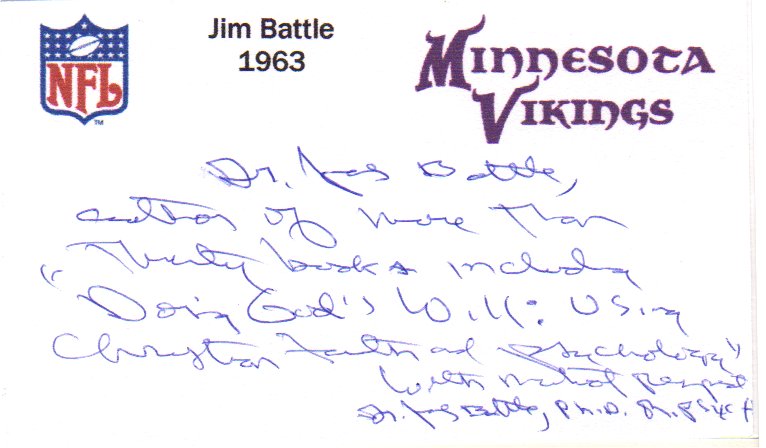 NFL
TM
Jim Battle
1963
MINNESOTA
VIKINGS
Dr. Battle,
author of more than
Thirty books including
"Doing God's Will: Using
Christian Faith and psychology"
With mutual Respect
Dr. Battle, Ph.D.